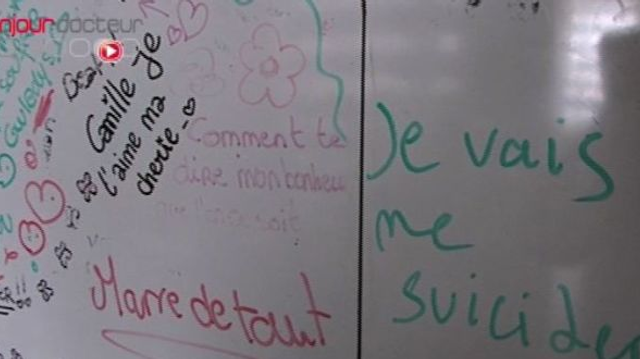 njourdocteur
Gwladys
Camille je
t'aime ma
cherie
Comment te
dire mon bonheu
Marre de tout
Je vais
me
suicider